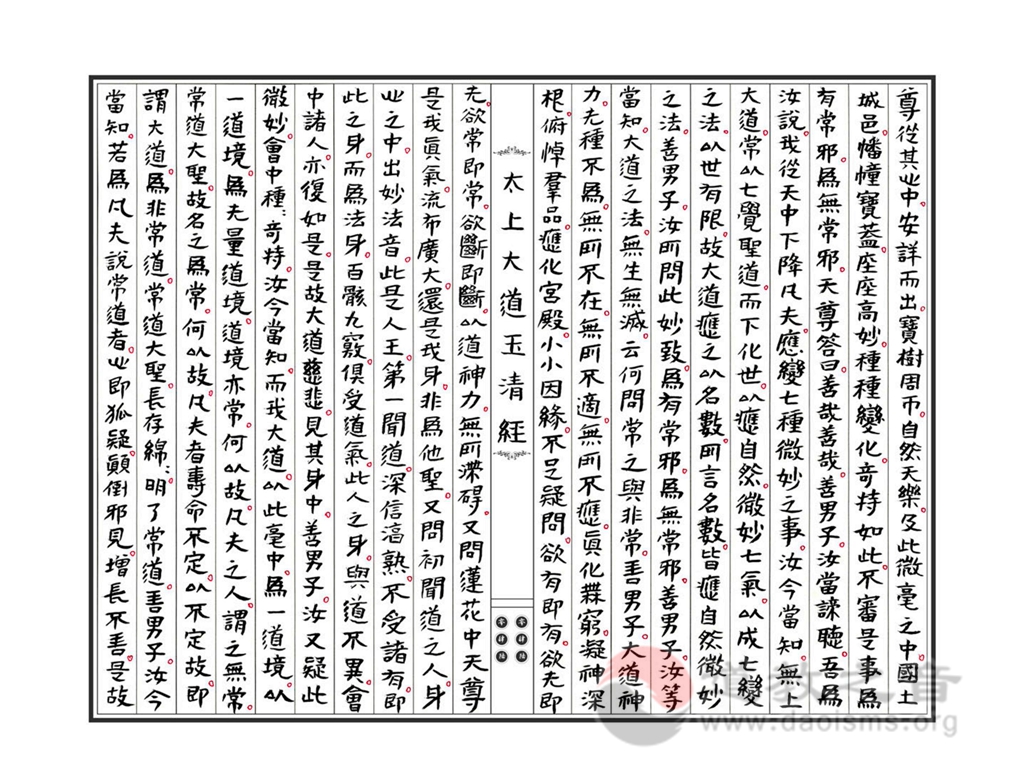 尊從其心中安詳而出寶樹周帀自然天樂及此微毫之中國土
城邑幡幢寶蓋座座高妙種種變化奇特如此不審是事爲
有常邪爲無常邪天尊答曰善哉善哉善男子汝當諦聽吾爲
汝說我從天中下降凡夫應變七種微妙之事汝今當知無上
大道常以七覺聖道而下化世以應自然微妙七氣以成七變
之法以世有限故大道應之以名數所言名數皆應自然微妙
之法善男子汝所問此妙致爲有常邪爲無常邪善男子汝等
當知大道之法無生無滅云何問常之與非常善男子大道神
力无種不爲無所不在無所不適無所不應眞化冥窮凝神深
根俯悼羣品應化宮殿小小因緣不足疑問欲有即有欲无即
太上大道玉清經
无欲常即常欲斷即斷以道神力無所滯碍又問蓮花中天尊
是我眞氣流布廣大還是我身非爲他聖又問初聞道之人身
心之中出妙法音此是人王第一聞道深信淳熟不受諸有即
此之身而爲法身百骸九竅俱受道氣此人之身與道不異會
中諸人亦復如是是故大道慈悲見其身中善男子汝又疑此
微妙會中種〻奇特汝今當知而我大道以此毫中爲一道境以
一道境爲无量道境道境亦常何以故凡夫之人謂之無常
常道大聖故名之爲常何以故凡夫者壽命不定以不定故即
謂大道爲非常道常道大聖長存綿〻明了常道善男子汝今
當知若爲凡夫說常道者心即狐疑顛倒邪見增長不善是故
道教之音
www.daoisms.org